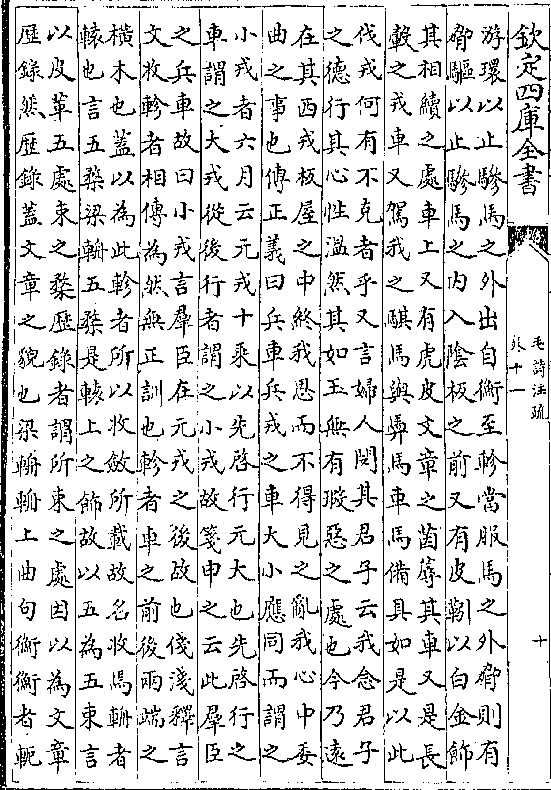 欽定四庫全書
毛詩注疏
卷十一
十
游環以止驂馬之外出自衡至軫當服馬之外脅則有
脅驅以止驂馬之内入陰板之前又有皮靷以白金飾
其相續之處車上又有虎皮文章之茵蓐其車又是長
轂之戎車又駕我之騏馬與馵馬車馬備具如是以此
伐戎何有不克者乎又言婦人閔其君子云我念君子
之德行其心性温然其如玉無有瑕惡之處也今乃逺
在其西戎板屋之中終我思而不得見之亂我心中委
曲之事也傳正義曰兵車兵戎之車大小應同而謂之
小戎者六月云元戎十乘以先啓行元大也先啓行之
車謂之大戎從後行者謂之小戎故箋申之云此羣臣
之兵車故曰小戎言羣臣在元戎之後故也俴淺釋言
文收軫者相傳為然無正訓也軫者車之前後兩端之
横木也蓋以為此軫者所以收斂所載故名收焉輈者
轅也言五楘梁輈五楘是轅上之飾故以五為五束言
以皮革五處束之楘歴錄者謂所束之處因以為文章
歴錄然歴錄蓋文章之貌也梁輈輈上曲句衡衡者軛